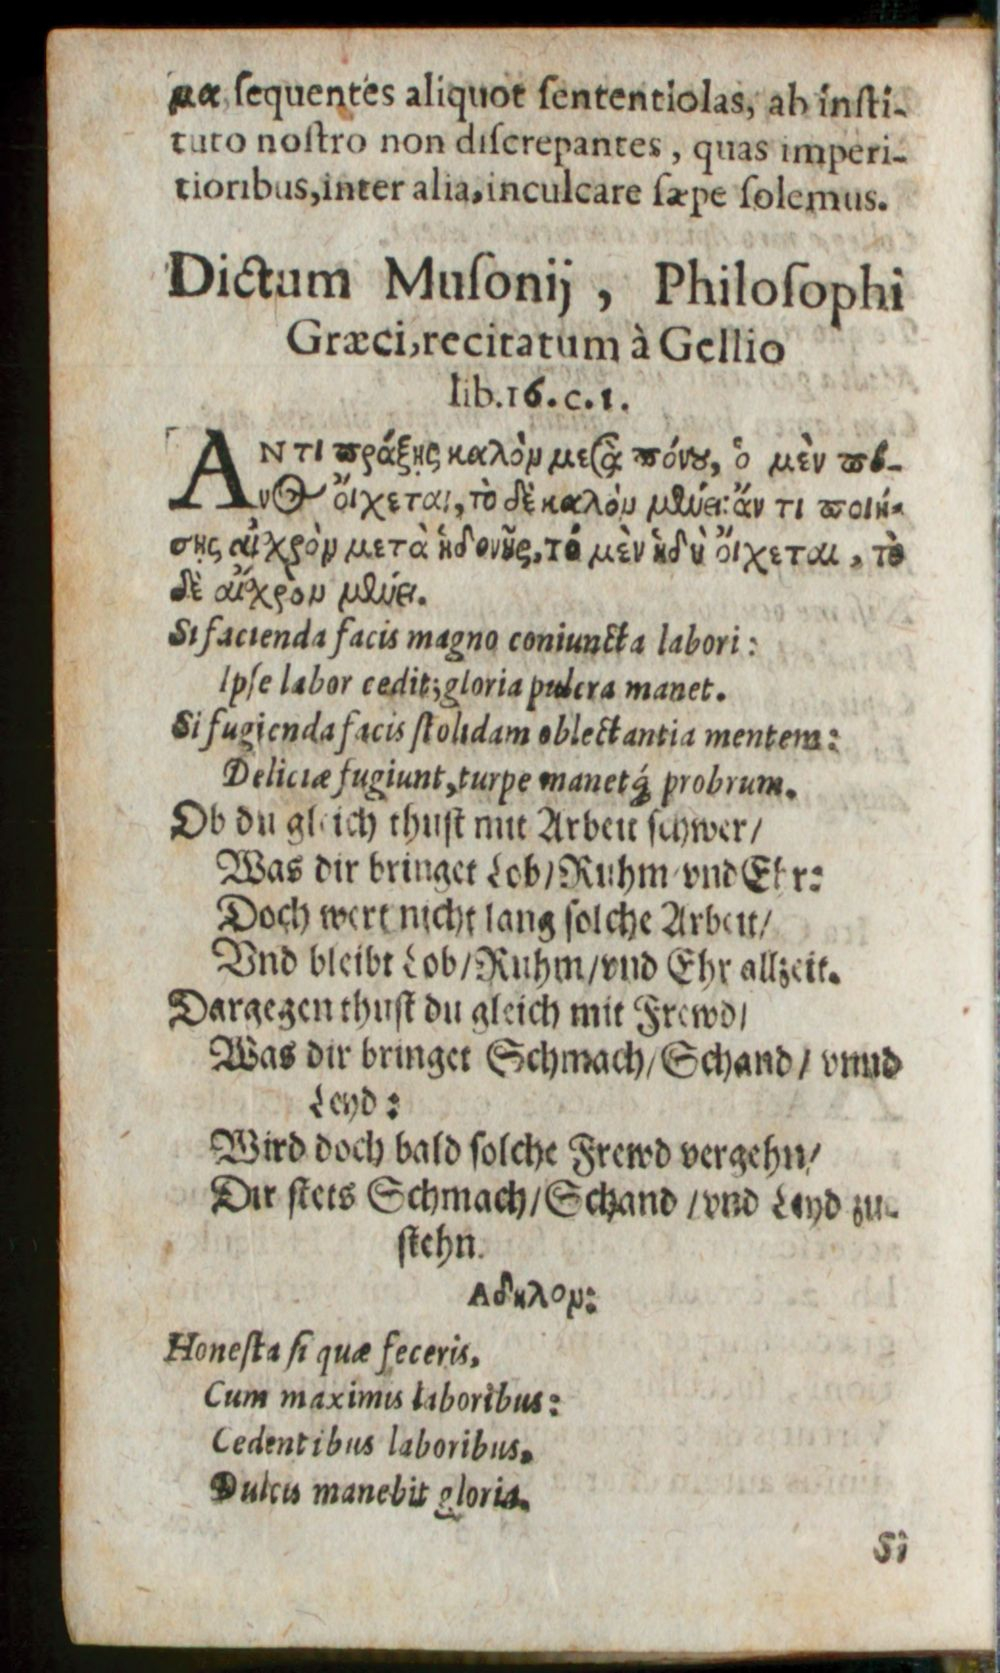 μα sequentes aliquot sententiolas, ab insti-
tuto nostro non discrepantes, quas imperi-
tioribus, inter alia, inculcare sæpe solemus.
Dictum Musonij, Philosophi
Græci, recitatum à Gellio
lib. 16. c. 1.
ΑΝ τι πράξῃς καλὸν μετὰ πόνου, ὁ μὲν πό-
νος οἴχεται, τὸ δὲ καλὸν μένει: ἄν τι ποιή-
σῃς αἰχρὸν μετὰ ἡδονῆς, τό μὲν ἡδὺ οἴχεται, τὸ
δὲ αἴχρὸν μένει.
Si facienda facis magno coniuncta labori:
Ipse labor cedit; gloria pulcra manet.
Si fugienda facis stolidam oblectantia mentem:
Deliciæ fugiunt, turpe manetq́; probrum.
Ob du gleich thust mit Arbeit schwer/
Was dir bringet Lob/Ruhm vnd Ehr:
Doch wert nicht lang solche Arbeit/
Vnd bleibt Lob/Ruhm/vnd Ehr allzeit.
Dargegen thust du gleich mit Frewd/
Was dir bringet Schmach/Schand/ vnnd
Leyd:
Wird doch bald solche Frewd vergehn/
Dir stets Schmach/Schand/vnd Leyd zu-
stehn.
Αδηλον:
Honesta si quæ feceris,
Cum maximis laboribus:
Cedentibus laboribus,
Dulcis manebit gloria.
Si